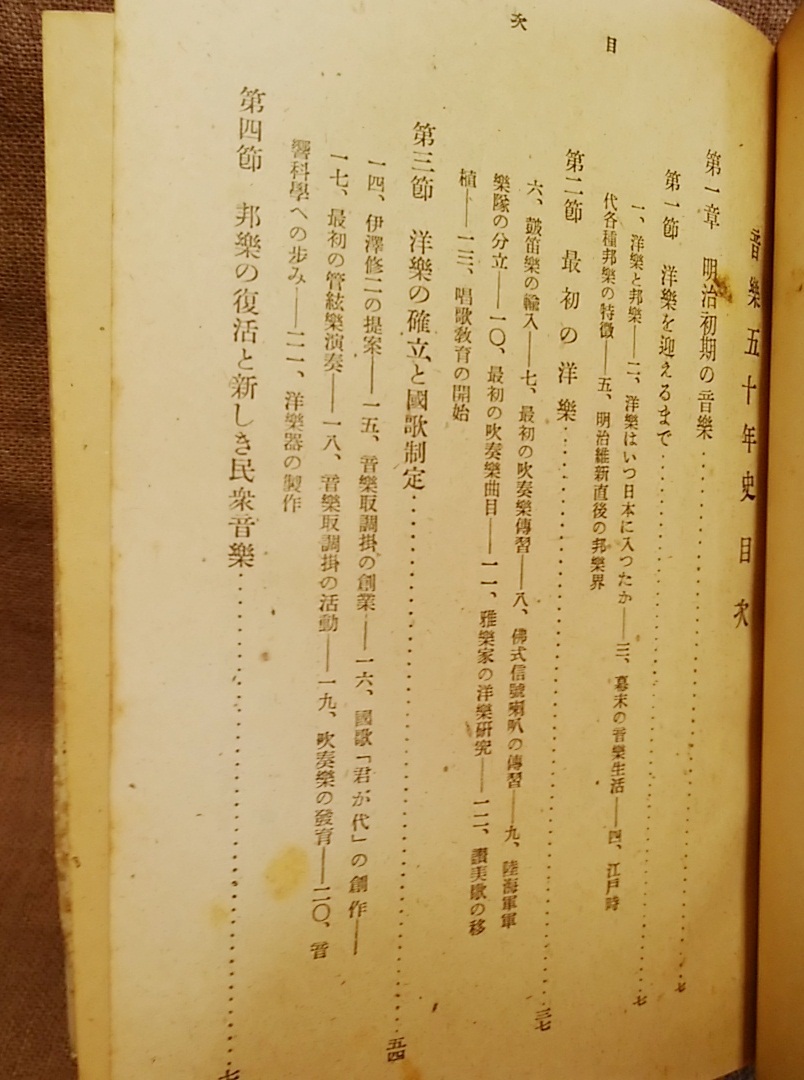 目次
音樂五十年史目次
第一章 明治初期の音樂……七
第一節 洋樂を迎えるまで……七
一、洋樂と邦樂――二、洋樂はいつ日本に入つたか――三、幕末の音樂生活――四、江戸時
代各種邦樂の特徴――五、明治維新直後の邦樂界
第二節 最初の洋樂……三七
六、鼓笛樂の輸入――七、最初の吹奏樂傳習――八、佛式信號喇叭の傳習――九、陸海軍軍
樂隊の分立――一〇、最初の吹奏樂曲目――一一、雅樂家の洋樂硏究――一二、讃美歌の移
植――一三、唱歌敎育の開始
第三節 洋樂の確立と國歌制定……五四
一四、伊澤修二の提案――一五、音樂取調掛の創業――一六、國歌「君が代」の創作――
一七、最初の管絃樂演奏――一八、音樂取調掛の活動――一九、吹奏樂の發育――二〇、音
響科學への歩み――二一、洋樂器の製作
第四節 邦樂の復活と新しき民衆音樂……七